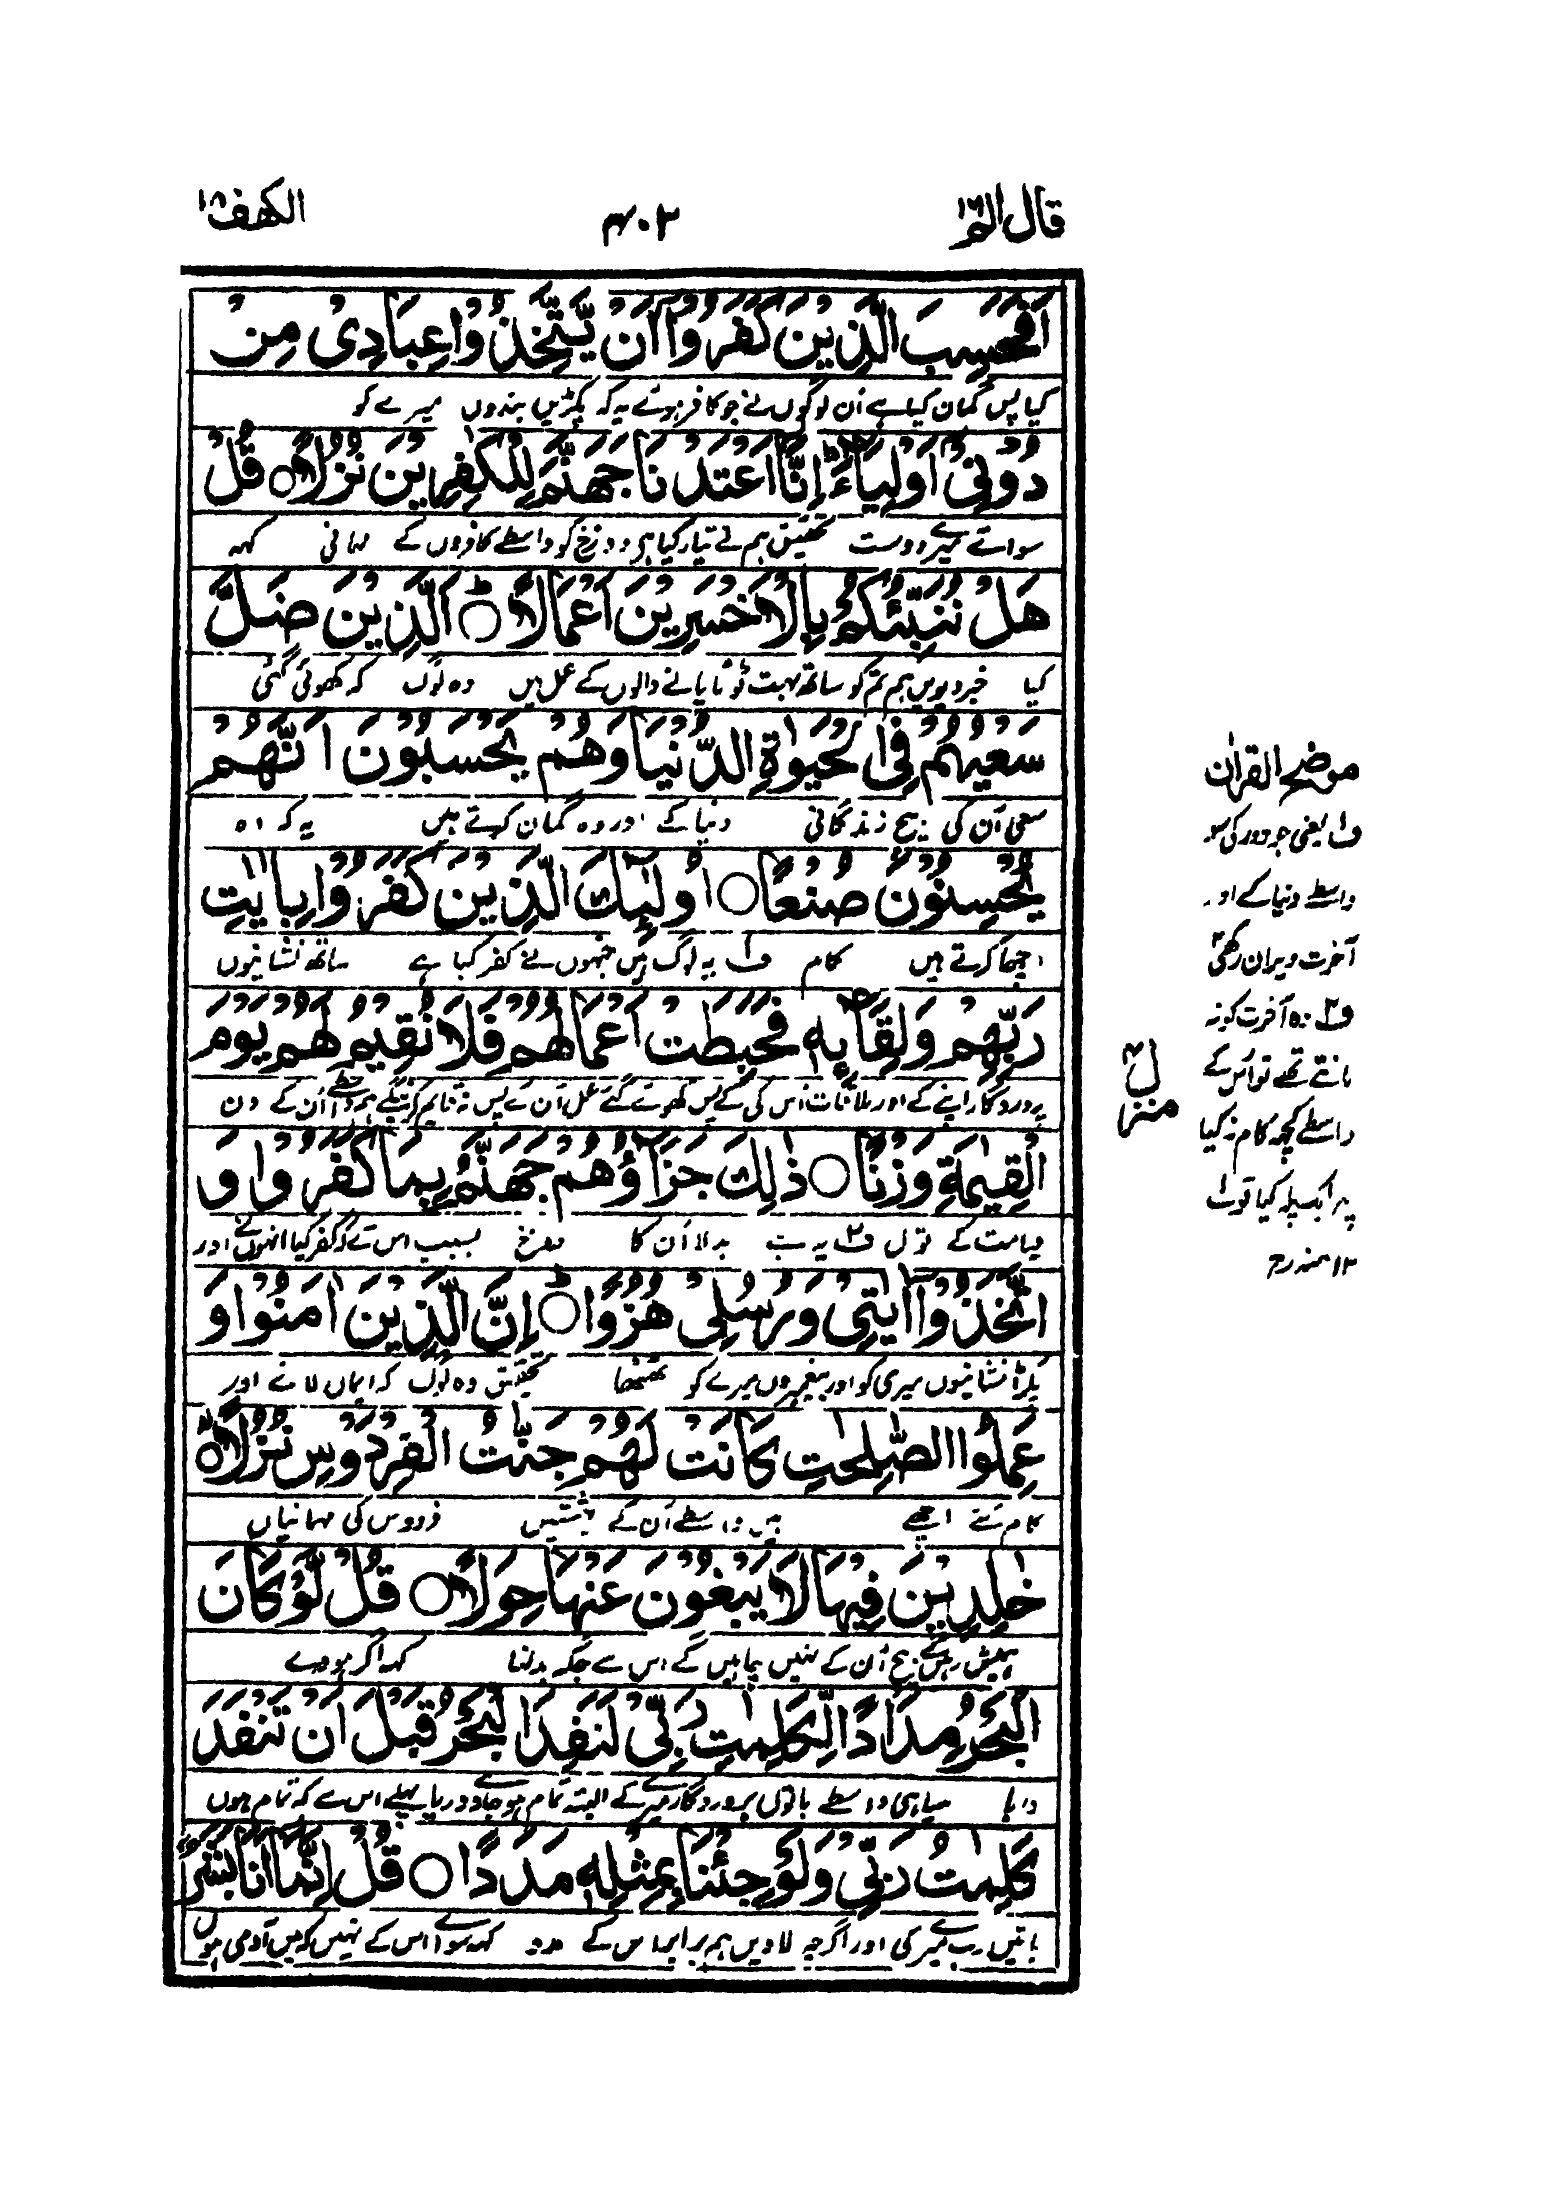 قال الم ۱۶
۴۰۳
الكهف ۱۸
اَفَحَسِبَ الَّذِيْنَ كَفَرُوْۤا اَنْ يَّتَّخِذُوْا عِبَادِيْ مِنْ
کیا پس گمان کیا ہے اُن لوگوں نے جو کافر ہوئے یہ کہ پکڑیں بندوں میرے کو
دُوْنِيْۤ اَوْلِيَآءَ ؕ اِنَّاۤ اَعْتَدْنَا جَهَنَّمَ لِلْكٰفِرِيْنَ نُزُلًا ○ قُلْ
سوائے میرے دوست تحقیق ہم نے تیار کیا ہے دوزخ کو واسطے کافروں کے مہمانی کہہ
هَلْ نُنَبِّئُكُمْ بِالْاَخْسَرِيْنَ اَعْمَالًا ○ؕ اَلَّذِيْنَ ضَلَّ
کیا خبر دیویں ہم تم کو ساتھ بہت ٹوٹا پانے والوں کے عمل میں وہ لوگ کہ کھوئی گئی
سَعْيُهُمْ فِي الْحَيٰوةِ الدُّنْيَا وَهُمْ يَحْسَبُوْنَ اَنَّهُمْ
سعی اُن کی بیچ زندگانی دنیا کے اور وہ گمان کرتے ہیں یہ کہ وہ
يُحْسِنُوْنَ صُنْعًا ○ اُولٰٓئِكَ الَّذِيْنَ كَفَرُوْا بِاٰيٰتِ
اچھا کرتے ہیں کام ف۱ یہ لوگ ہیں جنہوں نے کفر کیا ہے ساتھ نشانیوں
رَبِّهِمْ وَلِقَآئِهٖ فَحَبِطَتْ اَعْمَالُهُمْ فَلَا نُقِيْمُ لَهُمْ يَوْمَ
پروردگار اپنے کے اور ملاقات اس کی کے پس کھوئے گئے عمل اُن کے پس نہ قائم کریں گے ہم واسطے اُن کے دن
الْقِيٰمَةِ وَزْنًا ○ ذٰلِكَ جَزَآؤُهُمْ جَهَنَّمُ بِمَا كَفَرُوْا وَ
قیامت کے تول ف۲ یہ ہے بدلا اُن کا دوزخ بسبب اس کے کہ کفر کیا انہوں نے اور
اتَّخَذُوْۤا اٰيٰتِيْ وَرُسُلِيْ هُزُوًا ○ؕ اِنَّ الَّذِيْنَ اٰمَنُوْا وَ
پکڑا نشانیوں میری کو اور پیغمبروں میرے کو ٹھٹھا تحقیق وہ لوگ کہ ایمان لائے اور
عَمِلُوا الصّٰلِحٰتِ كَانَتْ لَهُمْ جَنّٰتُ الْفِرْدَوْسِ نُزُلًا ○
کام کئے اچھے ہیں واسطے اُن کے بہشتیں فردوس کی مہمانیاں
خٰلِدِيْنَ فِيْهَا لَا يَبْغُوْنَ عَنْهَا حِوَلًا ○ قُلْ لَّوْ كَانَ
ہمیش رہیں گے بیچ اُن کے نہیں چاہیں گے اس سے جگہ بدلنا کہہ اگر ہووے
الْبَحْرُ مِدَادًا لِّكَلِمٰتِ رَبِّيْ لَنَفِدَ الْبَحْرُ قَبْلَ اَنْ تَنْفَدَ
دریا سیاہی واسطے باتوں پروردگار میرے کے البتہ تمام ہو جاوے دریا پہلے اس سے کہ تمام ہوں
كَلِمٰتُ رَبِّيْ وَلَوْ جِئْنَا بِمِثْلِهٖ مَدَدًا ○ قُلْ اِنَّمَاۤ اَنَا بَشَرٌ
باتیں رب میرے کی اور اگرچہ لاویں ہم برابر اس کے مدد کہہ سوا اس کے نہیں کہ میں آدمی ہوں
موضح القرآن
ف۱ یعنی جو دوڑ کی سو
واسطے دنیا کے اور
آخرت ویران رکھی
ف۲ وہ آخرت کو نہ
مانتے تھے تو اُس کے
واسطے کچھ کام نہ کیا
پھر ایک پلہ کیا تولے
۱۲ منہ رح
منزل ۴